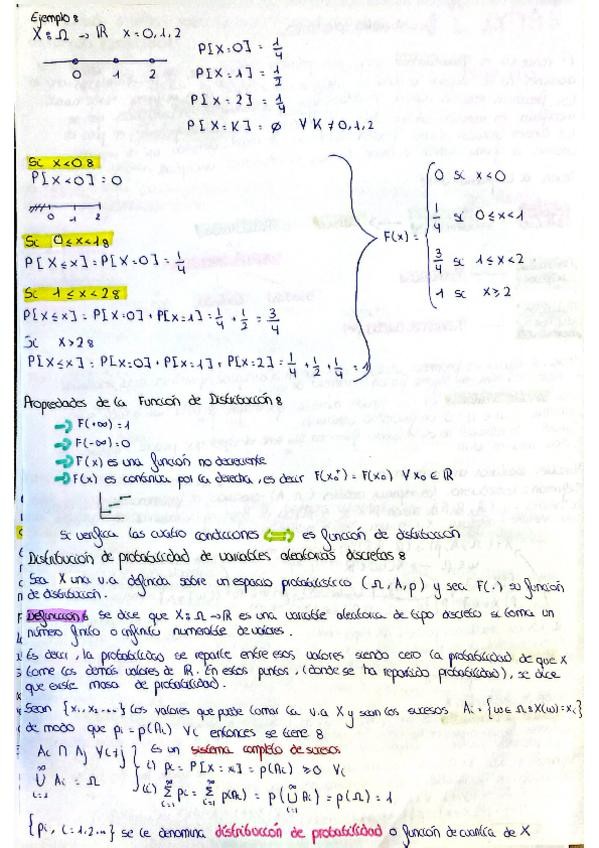 Ejemplo:
X: Ω → ℝ x = 0, 1, 2
0 1 2
P[X=0] = 1/4
P[X=1] = 1/2
P[X=2] = 1/4
P[X=K] = ∅ ∀ K ≠ 0, 1, 2
Si x<0:
P[X<0] = 0
0 1 2
Si 0≤x<1:
P[X≤x] = P[X=0] = 1/4
Si 1≤x<2:
P[X≤x] = P[X=0] + P[X=1] = 1/4 + 1/2 = 3/4
Si x>2:
P[X≤x] = P[X=0] + P[X=1] + P[X=2] = 1/4 + 1/2 + 1/4 = 1
F(x) =
0 si x<0
1/4 si 0≤x<1
3/4 si 1≤x<2
1 si x≥2
Propiedades de la Función de Distribución:
→ F(+∞) = 1
→ F(-∞) = 0
→ F(x) es una función no decreciente
→ F(x) es continua por la derecha, es decir F(x₀⁺) = F(x₀) ∀ x₀ ∈ ℝ
Si verifica las cuatro condiciones ⟺ es función de distribución
Distribución de probabilidad de variables aleatorias discretas:
Sea X una v.a definida sobre un espacio probabilístico (Ω, A, p) y sea F(.) su función
de distribución.
Definición: se dice que X: Ω → ℝ es una variable aleatoria de tipo discreto si toma un
número finito o infinito numerable de valores.
Es decir, la probabilidad se reparte entre esos valores siendo cero la probabilidad de que X
tome los demás valores de ℝ. En estos puntos, (donde se ha repartido probabilidad), se dice
que existe masa de probabilidad.
Sean {x₁, x₂ ...} los valores que puede tomar la v.a X y sean los sucesos Ai = {ω ∈ Ω : X(ω) = xi}
de modo que pi = p(Ai) ∀i entonces se tiene:
Ai ∩ Aj ∀i ≠ j } Es un sistema completo de sucesos
⋃ᵢ₌₁^∞ Ai = Ω
i) pi = P[X = xi] = p(Ai) ≥ 0 ∀i
ii) Σᵢ₌₁^∞ pi = Σᵢ₌₁^∞ p(Ai) = p(⋃ᵢ₌₁^∞ Ai) = p(Ω) = 1
{pi, i = 1, 2...} se le denomina distribución de probabilidad o función de cuantía de X